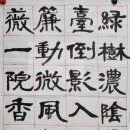 綠樹濃陰
臺倒影入
簾動微風
薇一院香